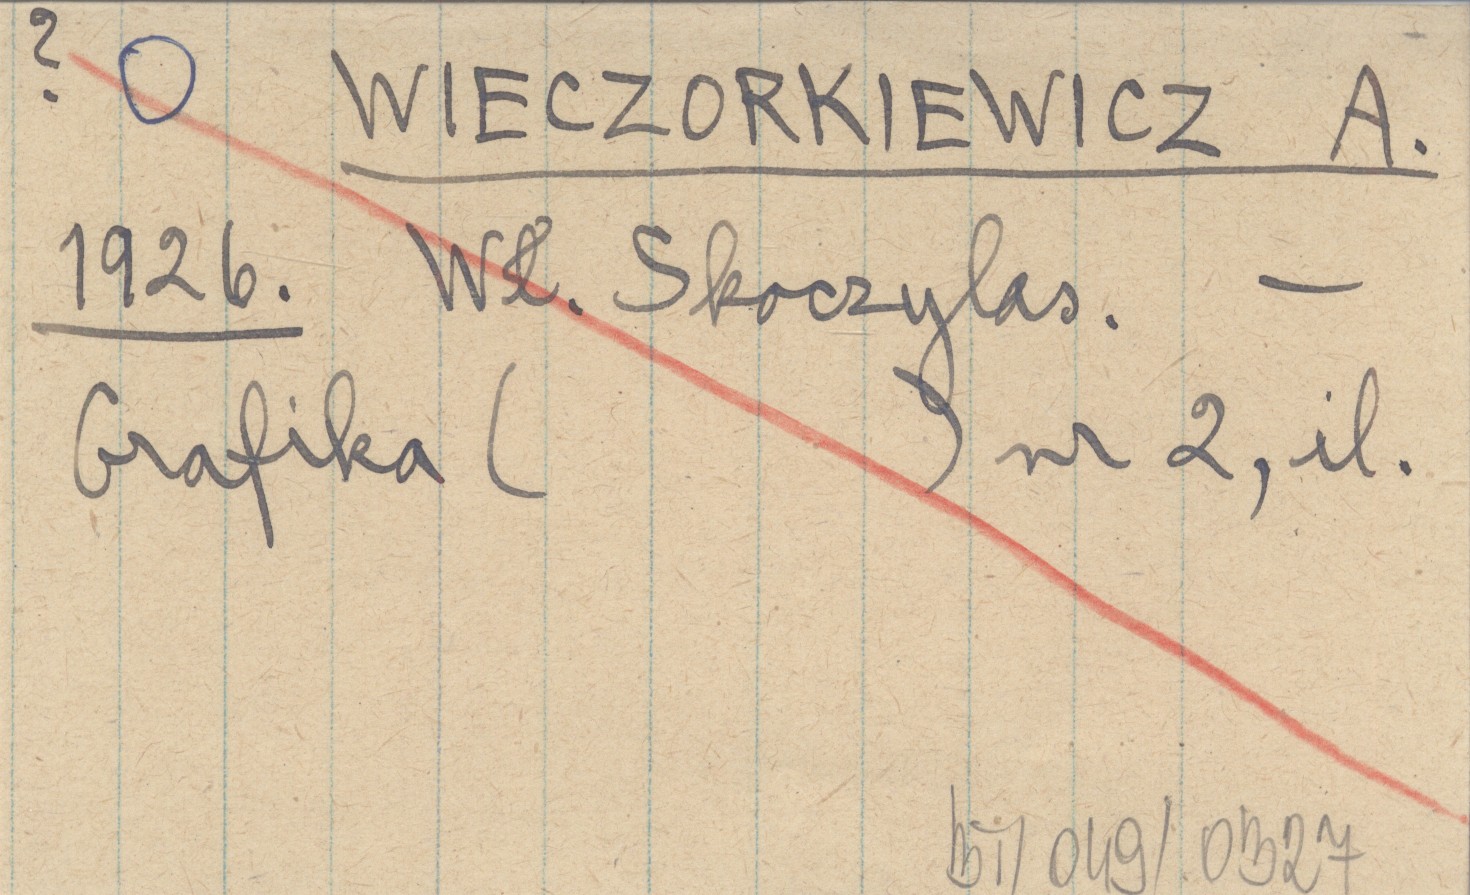 ?
WIECZORKIEWICZ A.
1926. Wł. Skoczylas. —
Grafika ( ) nr 2, il.
bi/049/0327